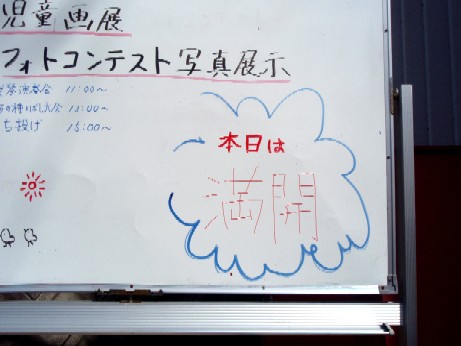 児童画展
フォトコンテスト写真展示
琴演奏会 11:00〜
種ばし大会 13:00〜
ち投げ 15:00〜
本日は
満開